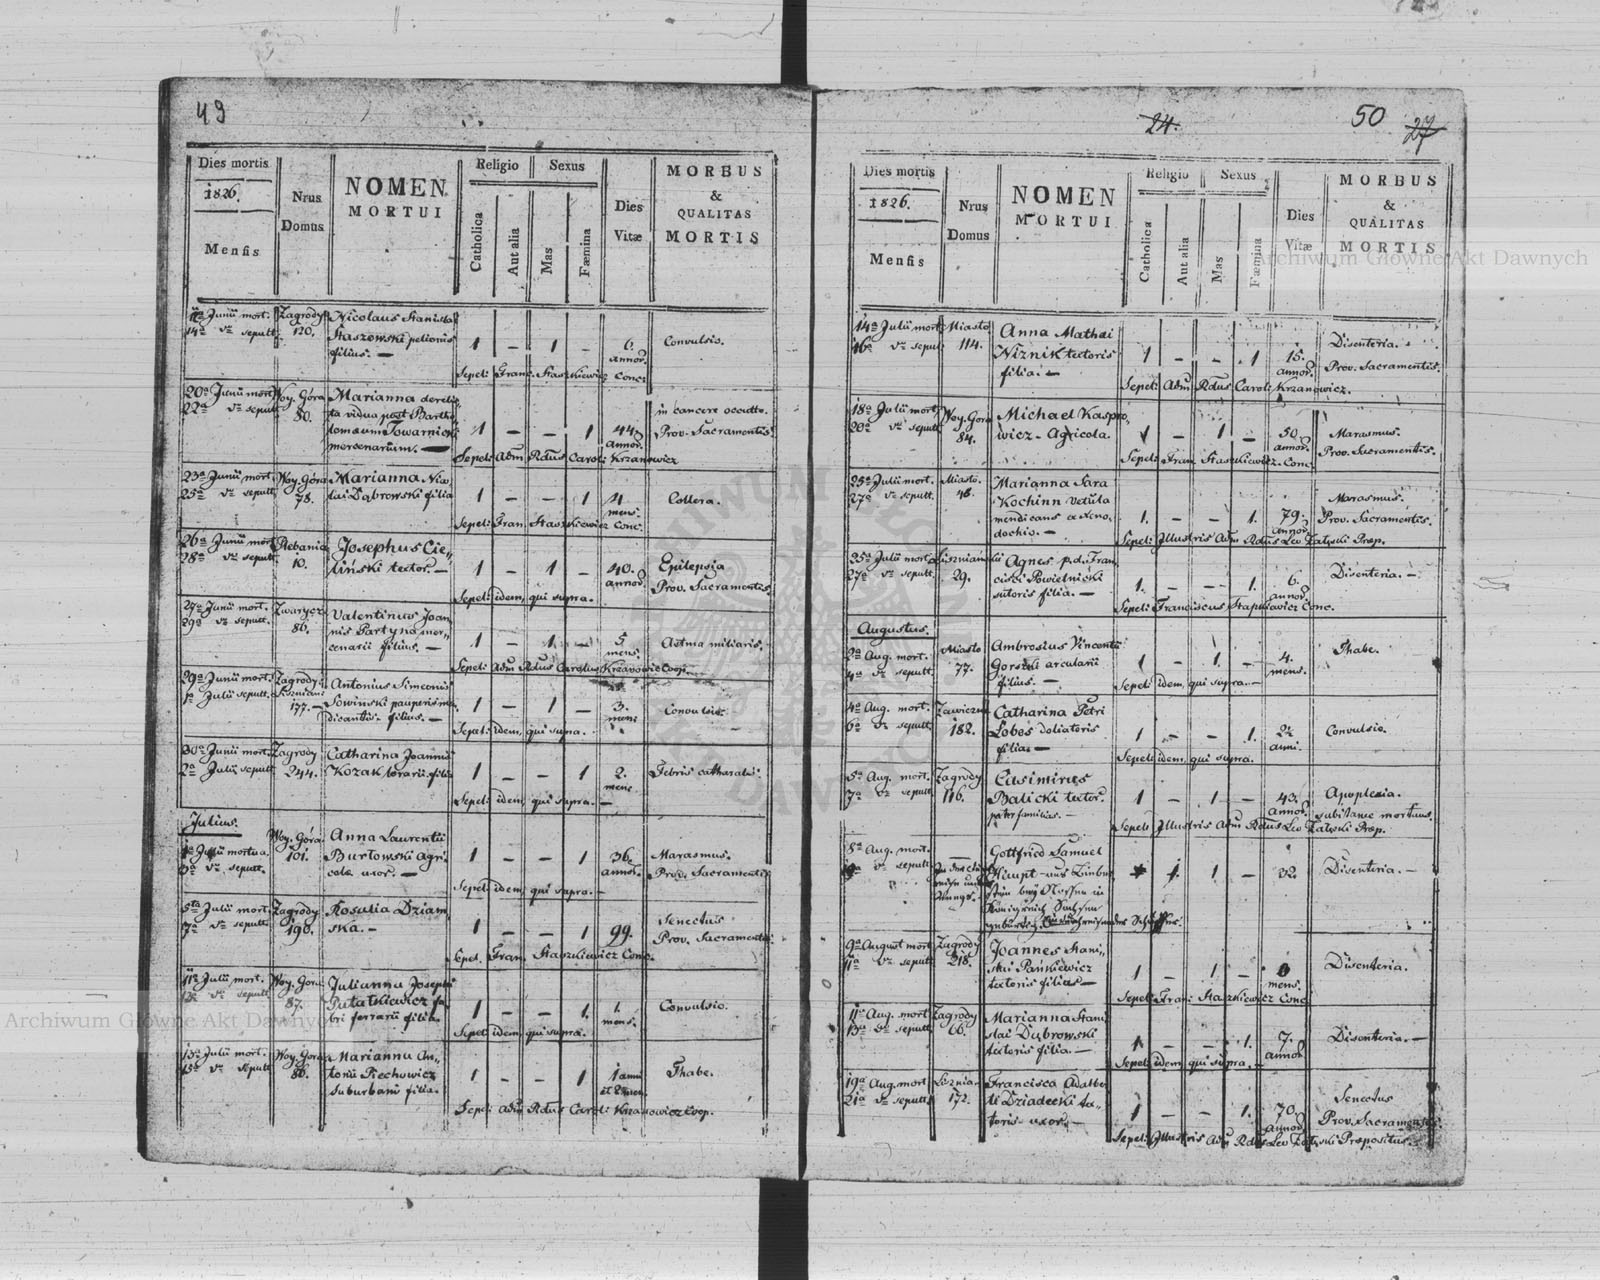 49
Dies mortis
1826.
Mensis
Nrus
Domus
NOMEN
MORTUI
Religio
Catholica
Aut alia
Sexus
Mas
Fæmina
Dies
Vitæ
MORBUS
&
QUALITAS
MORTIS
Junii mort. Zagrody Nicolaus Stanislai
14a dto sepult. 120. Staszowski pelionis
filius. — 1 — 1 — 6. annor. Convulsio.
Sepel: Franc. Staszkiewicz Conc:
20a Junii mort. Woy. Góra Marianna derelic-
22a dto sepult. 80. ta vidua post Bartho-
lomæum Towarnicki 1 — — 1 44. annor. in cancere occulto.
mercenarium. — Prov. Sacramentis.
Sepel: Adm Rdus Carol: Krzanowicz
23a Junii mort. Woy. Góra Marianna Nico-
25a dto sepult. 78. lai Dąbrowski filia 1 — — 1 4 mens. Collera.
Sepel: Fran. Staszkiewicz Conc.
26a Junii mort. Plebania Josephus Cie-
28a dto sepult. 10. liński textor. — 1 — 1 — 40. annor. Epilepsia
Prov. Sacramentis.
Sepel: idem, qui supra.
27a Junii mort. Zwarycz Valentinus Joan-
29a dto sepult. 86. nis Partyna mer-
cenarii filius. — 1 — 1 — 5 mens. Astma miliaris.
Sepel: Adm Rdus Carolus Krzanowic Coop.
29a Junii mort. Zagrody Antonius Simeonis
1a Julii sepult. 177. — Sowinski pauperis men-
dicantis filius. — 1 — 1 — 3. mens: Convulsio.
Sepel: idem, qui supra.
30a Junii mort. Zagrody Catharina Joannis
2a Julii sepult. 244. Kozak lorarii filia 1 — — 1 2. mens. Febris catharalis.
Sepel: idem, qui supra. —
Julius.
1a Julii mortua Woy. Góra Anna Laurentii
3a dto sepult. 101. Burłowski agri-
colæ uxor. — 1 — — 1 36. annor. Marasmus.
Prov. Sacramentis
Sepel: idem, qui supra. —
5ta Julii mort. Zagrody Rosalia Dziam-
7a dto sepult. 190. ska. — 1 — — 1 99. Senectus
Prov. Sacramentis.
Sepel. Fran. Staszkiewicz Conc.
11a Julii mort. Woy. Gora Julianna Josephi
dto sepult. 87. Putatkiewicz fa-
bri ferrarii filia. 1 — — 1. 1. mens. Convulsio.
Sepel: idem, qui supra.
13a Julii mort. Woy. Gora Marianna An-
15a dto sepult. 86. tonii Piechowicz
suburbani filia. 1 — — 1 1 anni et 2 men. Thabe.
Sepel: Adm Rdus Carol: Krzanowicz Coop.
24.
50
27
Dies mortis
1826.
Mensis
Nrus
Domus
NOMEN
MORTUI
Religio
Catholica
Aut alia
Sexus
Mas
Fæmina
Dies
Vitæ
MORBUS
&
QUALITAS
MORTIS
14a Julii mort. Miasto Anna Mathæi
16a dto sepult. 114. Niznik textoris
filia. — 1 — — 1 15. annor. Disenteria.
Prov. Sacramentis.
Sepel: Adm Rdus Carol: Krzanowicz.
18a Julii mort. Woy. Gora Michael Kaspro-
20a dto sepult. 84. wicz — Agricola. 1 — 1 — 50. annor. Marasmus.
Prov. Sacramentis.
Sepel: Fran. Staszkiewicz. Conc.
25a Julii mort. Miasto. Marianna Sara
27a dto sepult. 48. Kochinn vetula
mendicans ex xeno-
dochio. — 1. — — 1. 79. annor. Marasmus.
Prov. Sacramentis.
Sepel: Illustris Adm Rdus Leo Prep.
25a Julii mort. Agnes p.d. Fran-
27a dto sepult. 29. cisci Powietnicki
sutoris filia. — 1. — — 1. 6. annor. Disenteria. —
Sepel: Franciscus Conc.
Augustus.
2a Aug. mort. Miasto Ambrosius Vincentii
4a dto sepult. 77. Gorski arcularii
filius. — 1 — 1. — 4. mens. Thabe.
Sepel: idem, qui supra. —
4a Aug. mort. 182. Catharina Petri
6a dto sepult. Lobos doliatoris
filia. — 1 — — 1. 2½ anni. Convulsio.
Sepel: idem, qui supra.
5a Aug. mort. Zagrody Casimirus
7a dto sepult. 116. Balicki textor.
paterfamilias. — 1 — 1 — 43. annor. Apoplexia.
subitanie mortuus.
Sepel: Illustris Adm Rdus Leo Prep.
8a Aug. mort. — Gottfried Samuel
dto sepult. Haupt aus
Königreich Sachsen
1. 1 — 32. Disenteria. —
9a August mort. Zagrody Joannes Stani-
11a dto sepult. 218. slai Pańkiewicz
textoris filius — 1 — 1 — mens. Disenteria.
Sepel: Fran: Staszkiewicz Conc.
11a Aug. mort. Zagrody Marianna Stani-
13a dto sepult. 66. slai Dąbrowski
textoris filia. — 1 — — 1. 7. annor. Disenteria. —
Sepel: idem, qui supra. —
19a Aug. mort. Francisca Adalber-
21a dto sepult. 172. ti Dziadecki tex-
toris uxor. — 1 — — 1. 70. annor. Senectus
Prov. Sacramentis.
Sepel: Illustris Adm Rdus Leo Prepositus. —
Archiwum Główne Akt Dawnych
Archiwum Główne Akt Dawnych